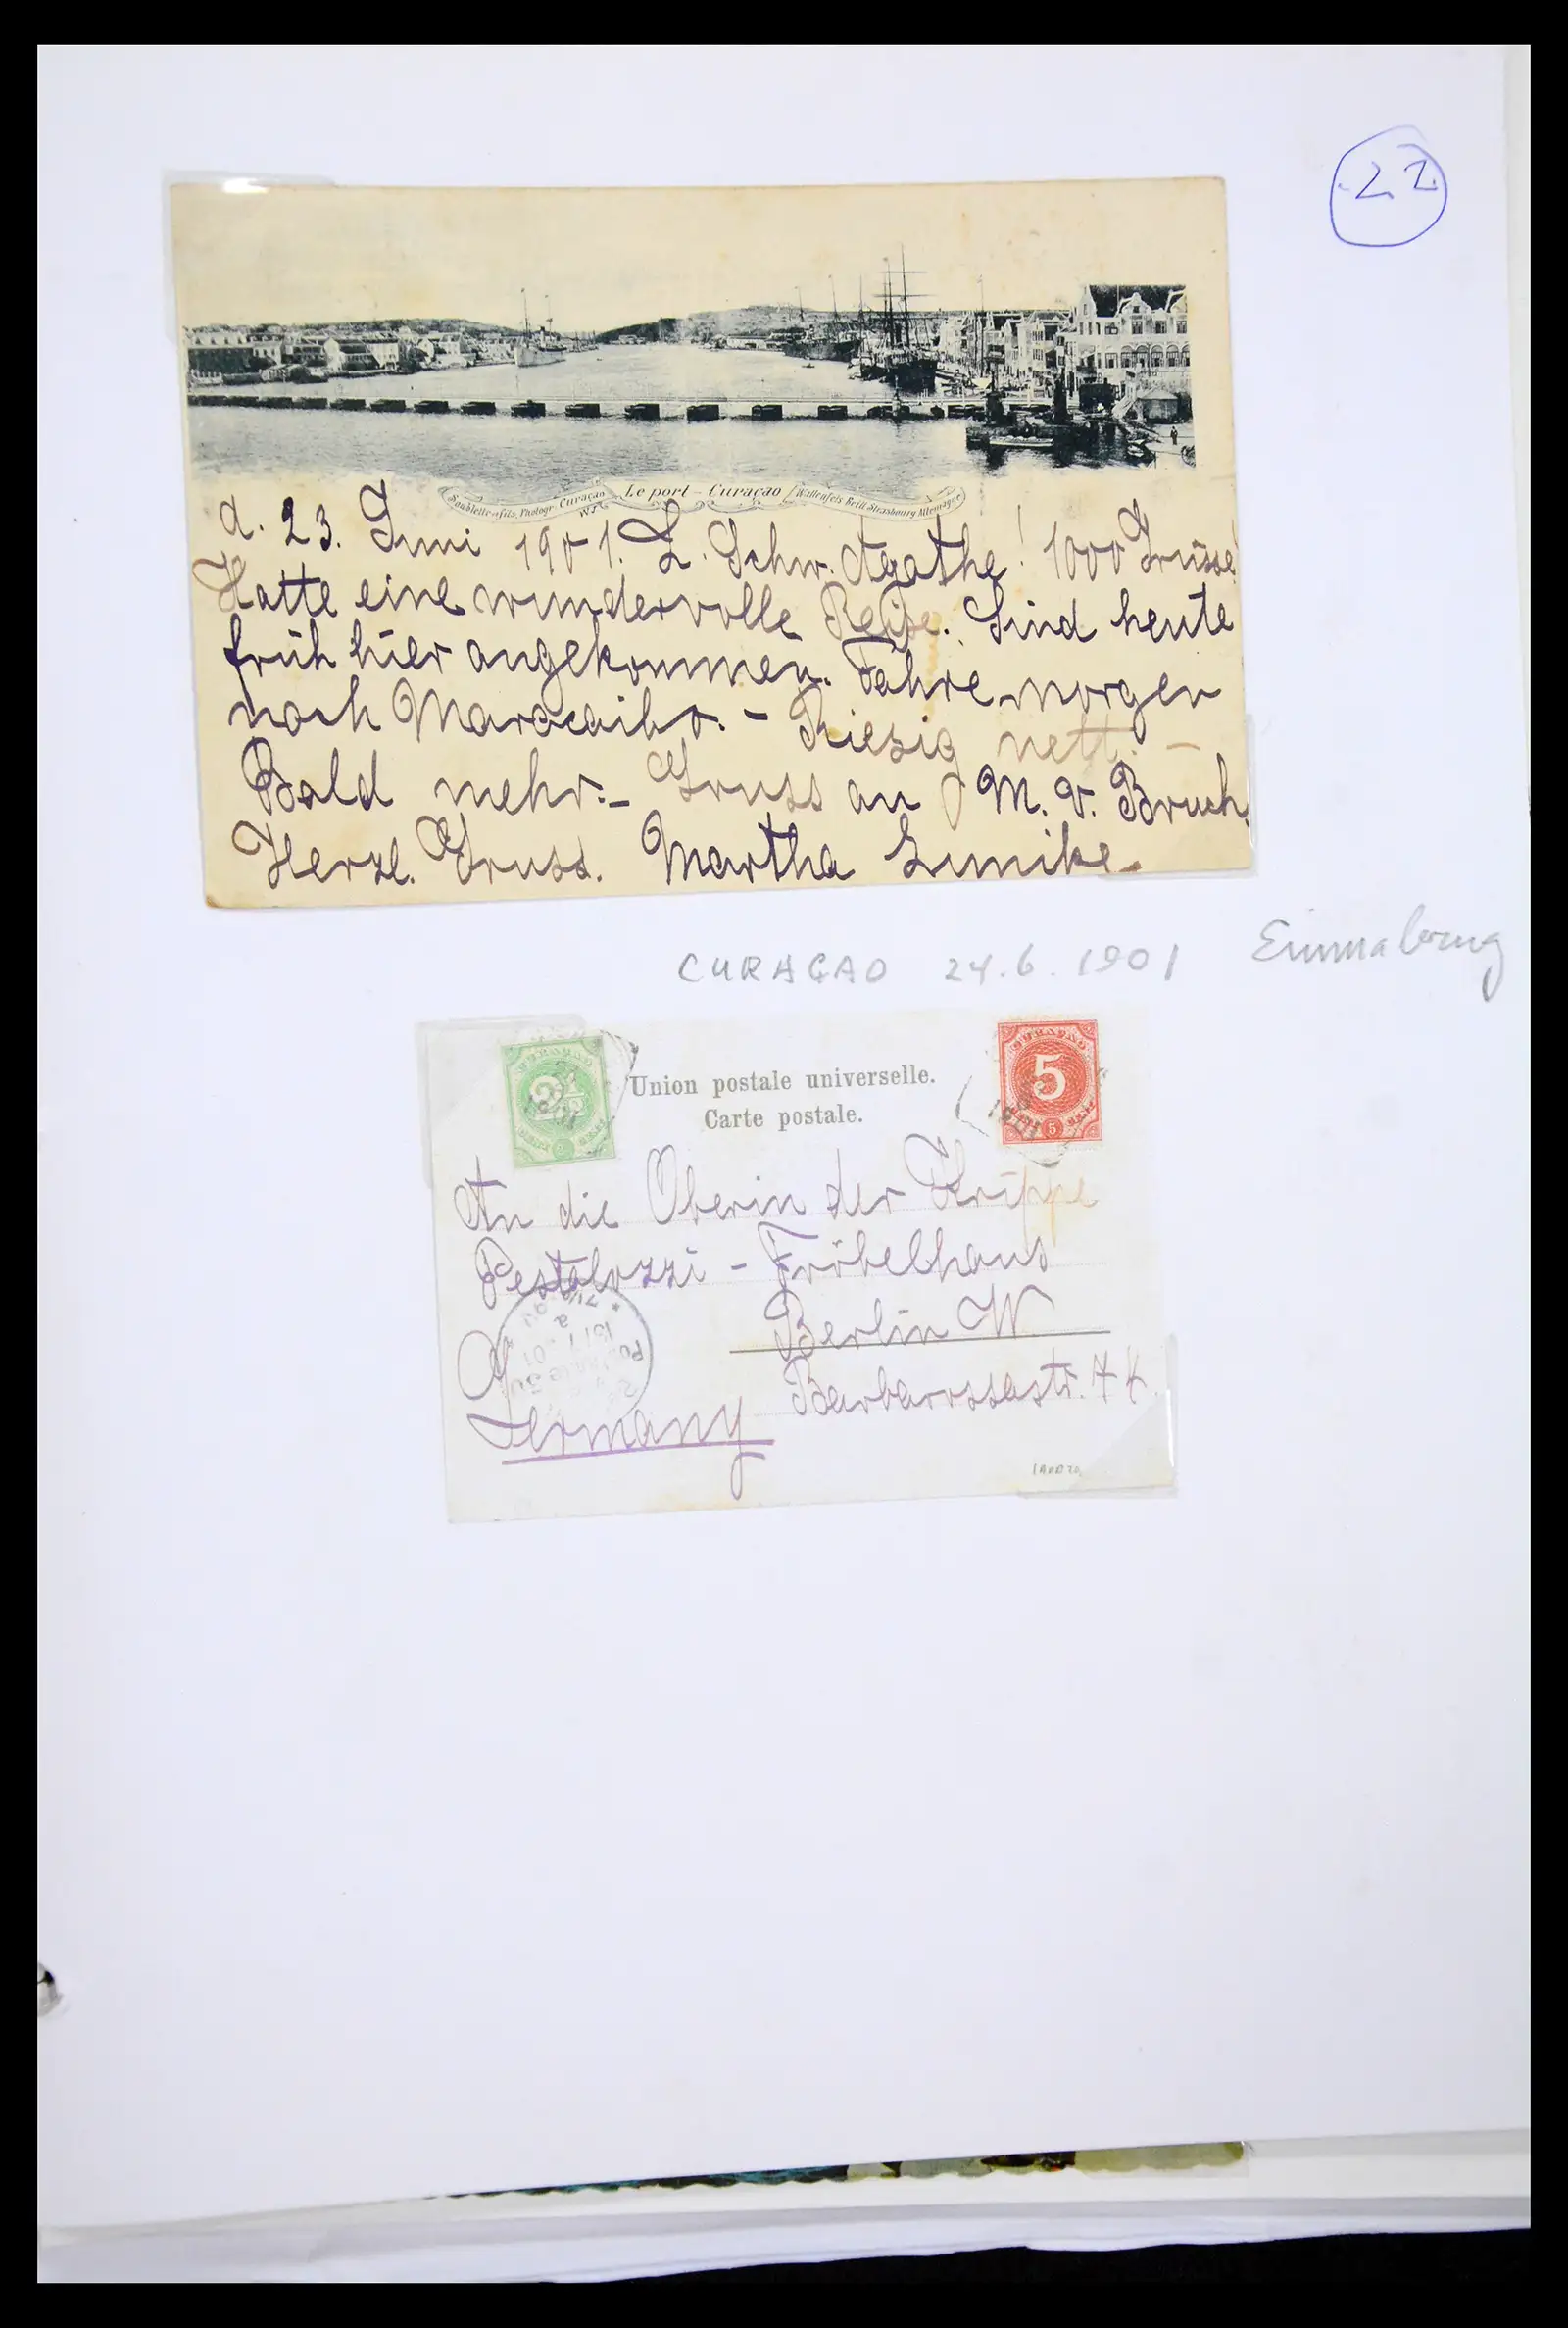 22
Soublette et fils, Photogr. Curaçao
Le port - Curaçao
Wallenfels Brill Strasbourg Allemagne
d. 23. Juni 1901. L. Schw. Agathe! 1000 Grüsse!
Hatte eine wundervolle Reise. Sind heute
früh hier angekommen. Fahre morgen
nach Maracaibo. - Riesig nett. -
Bald mehr. - Gruss an M. v. Bruch.
Herzl. Gruss. Martha
CURAÇAO 24.6.1901
Emmabrug
CURAÇAO
2½
CENT
Union postale universelle.
Carte postale.
CURAÇAO
5
CENT
5
1901
An die Oberin der Krippe
Pestalozzi - Fröbelhaus
Berlin W
Barbarossastr.
Germany